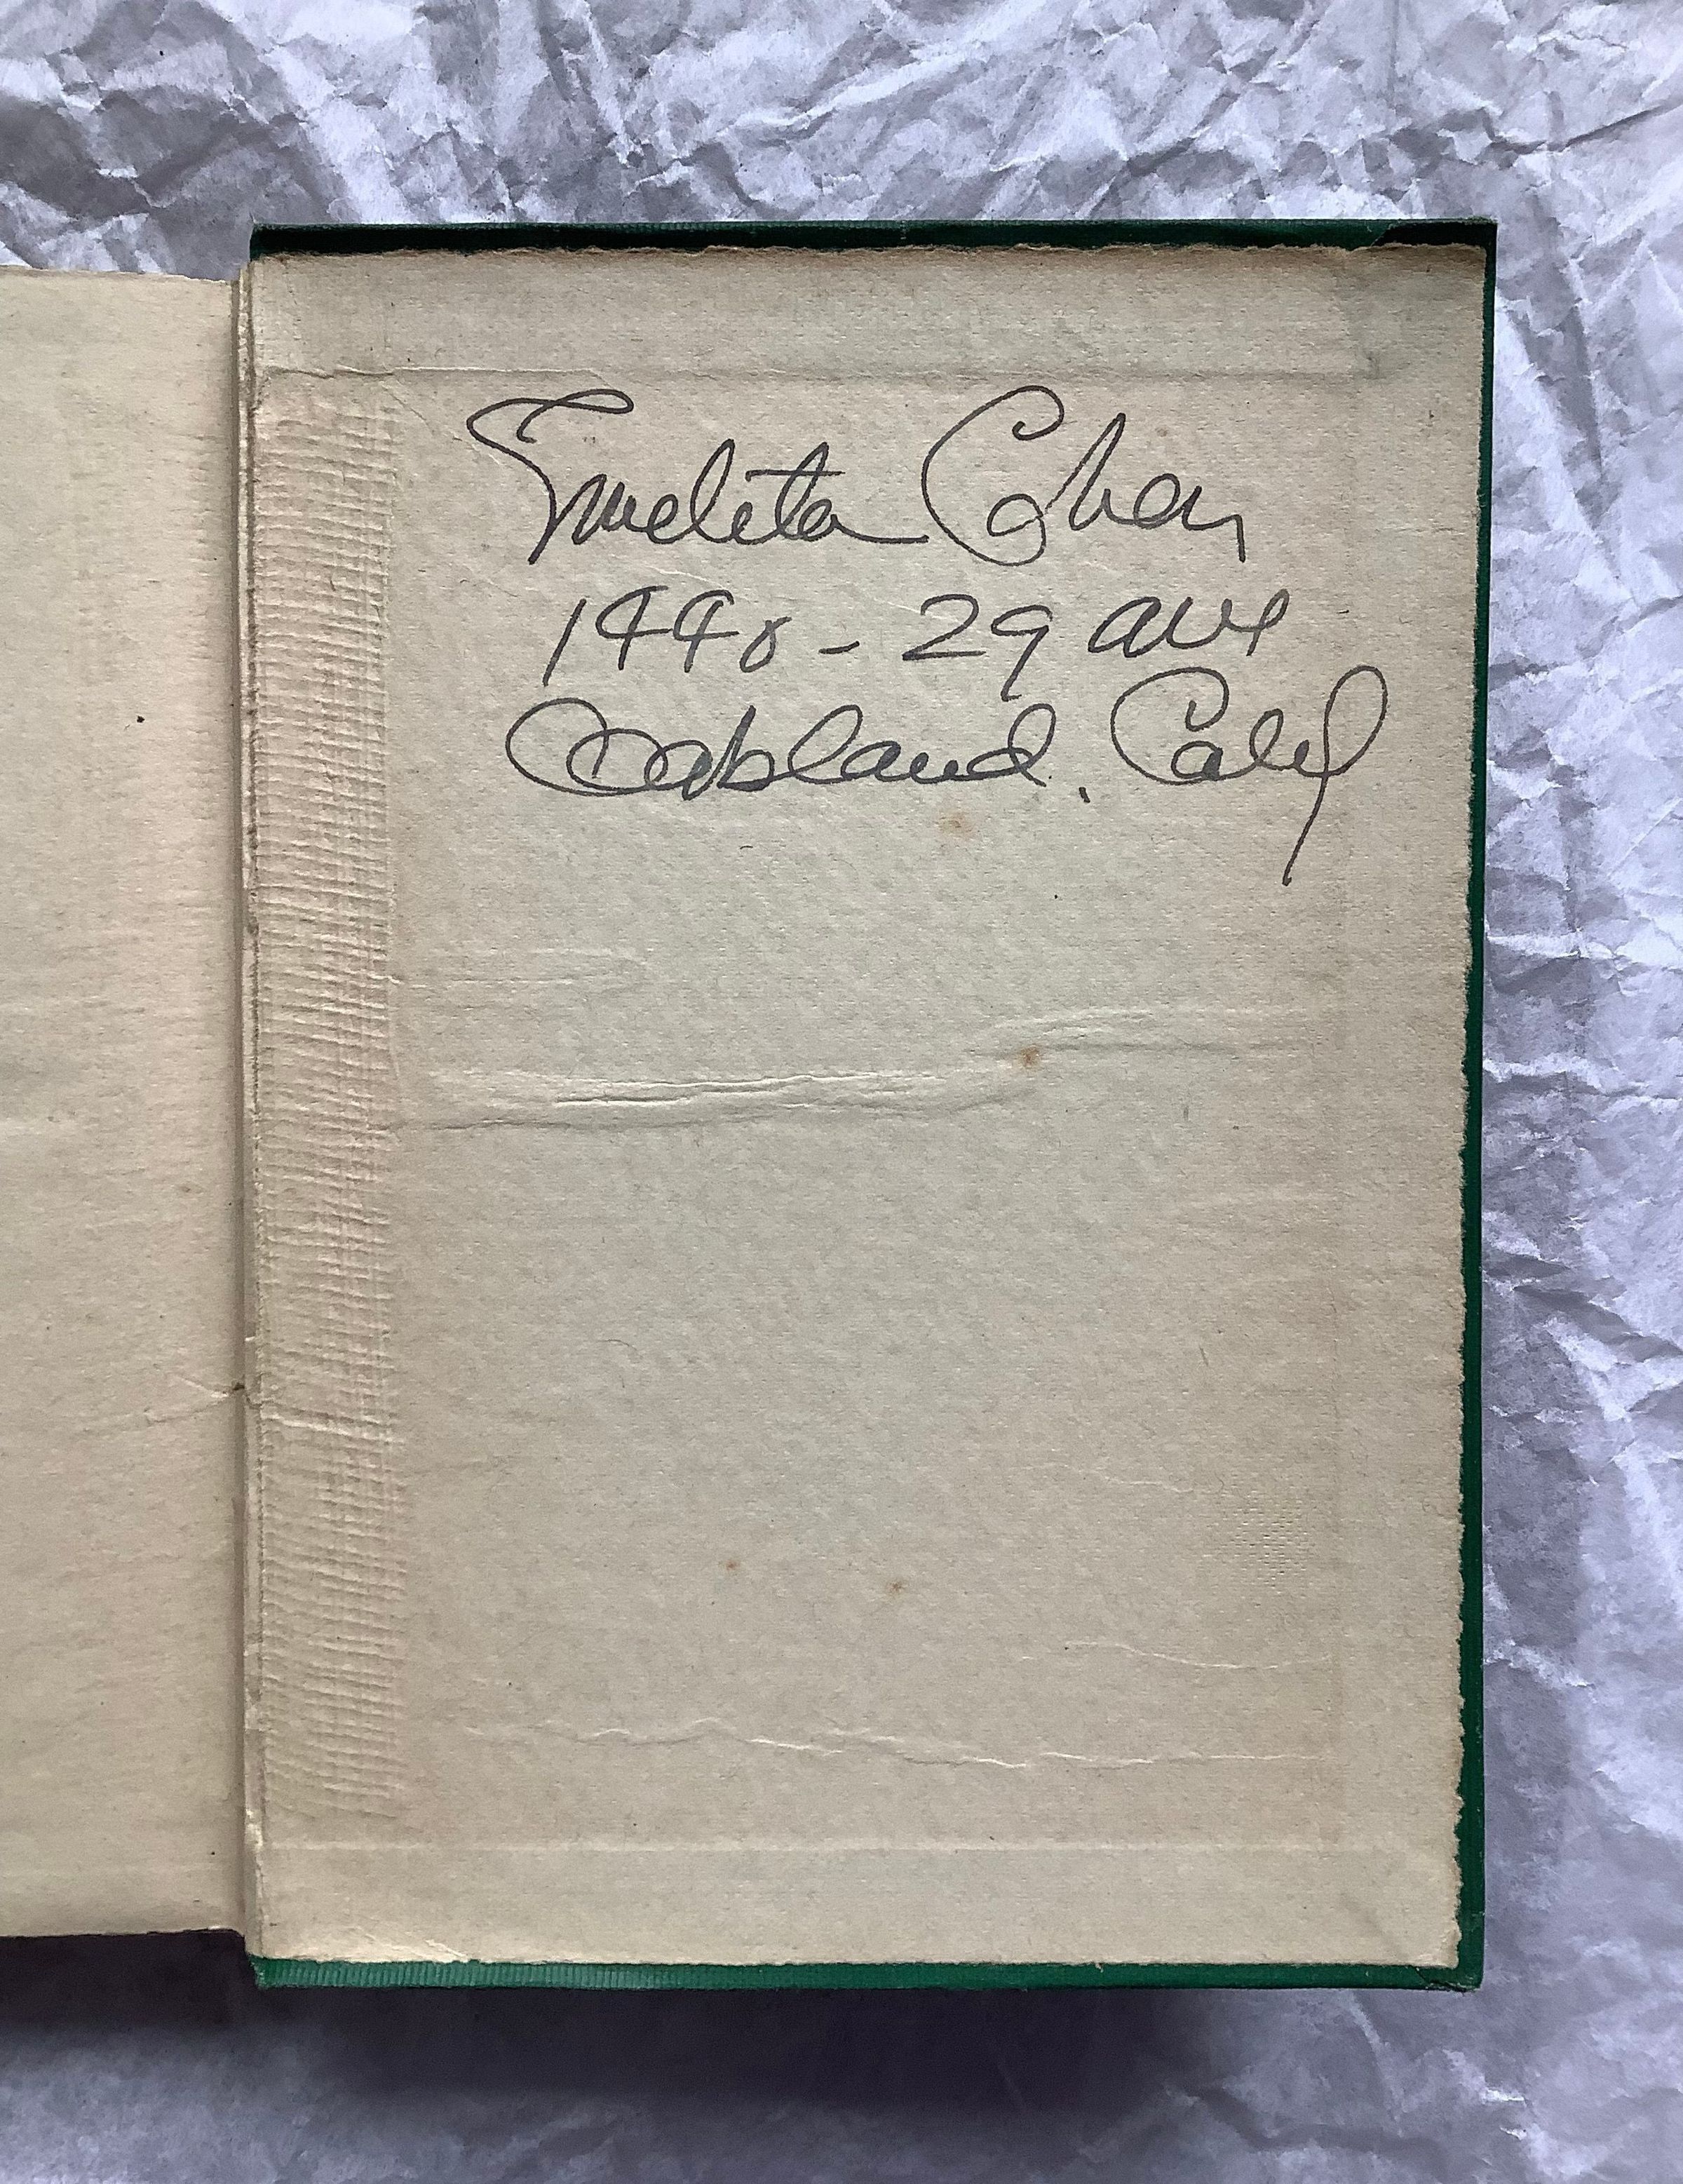 Emelita Cohen
1440 - 29 ave
Oakland. Calif